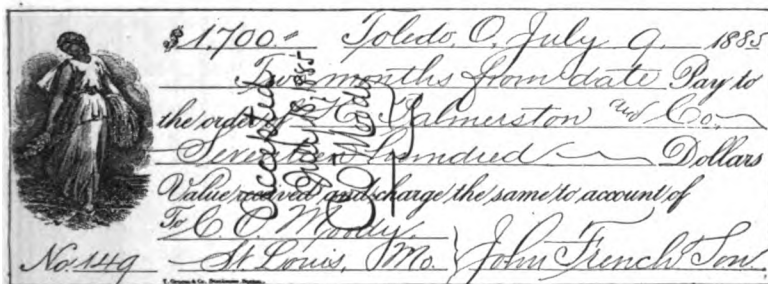 $1,700.= Toledo, O. July 9. 1885
Two months from date Pay to
the order of H. Palmerston and Co.
Seventeen hundred Dollars
Value received and charge the same to account of
To C C Moody,
St. Louis, Mo.
John French Son
No. 149
Accepted
July 1885
C C Moody